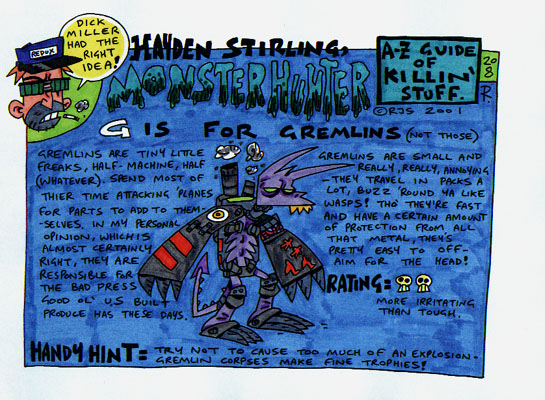 DICK
MILLER
HAD THE
RIGHT
IDEA!
REDUX
HAYDEN STIRLING,
MONSTER HUNTER
A-Z GUIDE
OF
KILLIN'
STUFF.
208
R.
©RJS 2001
G IS FOR GREMLINS (NOT THOSE)
GREMLINS ARE TINY LITTLE
FREAKS, HALF-MACHINE, HALF
(WHATEVER). SPEND MOST OF
THIER TIME ATTACKING 'PLANES
FOR PARTS TO ADD TO THEM-
-SELVES. IN MY PERSONAL
OPINION, WHICH IS
ALMOST CERTAINLY
RIGHT, THEY ARE
RESPONSIBLE FOR
THE BAD PRESS
GOOD OL' U.S BUILT
PRODUCE HAS THESE DAYS.
GREMLINS ARE SMALL AND
REALLY, REALLY, ANNOYING
-THEY TRAVEL IN PACKS A
LOT, BUZZ 'ROUND YA LIKE
WASPS! THO' THEY'RE FAST
AND HAVE A CERTAIN AMOUNT
OF PROTECTION FROM ALL
THAT METAL, THEY'S
PRETTY EASY TO OFF-
AIM FOR THE HEAD!
RATING=
MORE IRRITATING
THAN TOUGH.
HANDY HINT= TRY NOT TO CAUSE TOO MUCH OF AN EXPLOSION-
GREMLIN CORPSES MAKE FINE TROPHIES!